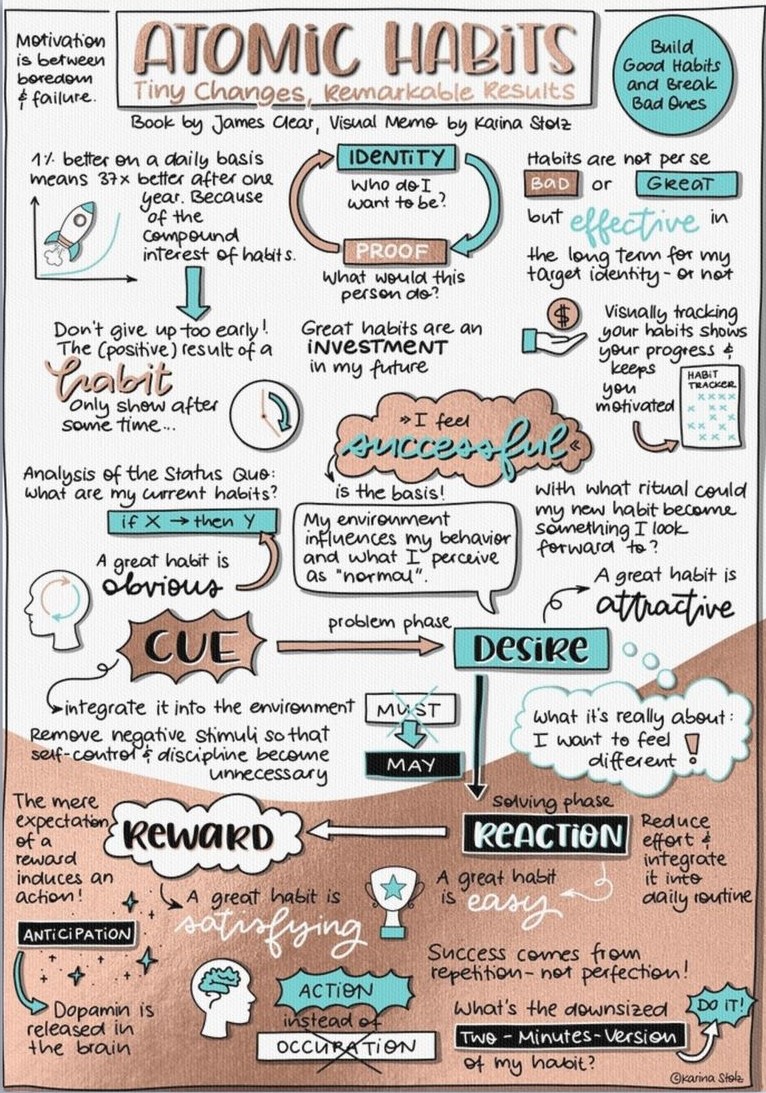 Motivation
is between
boredom
& failure.
ATOMIC HABITS
Tiny Changes, Remarkable Results
Build
Good Habits
and Break
Bad Ones
Book by James Clear, Visual Memo by Karina Stolz
1% better on a daily basis
means 37x better after one
year. Because
of the
compound
interest of habits.
IDENTITY
Who do I
want to be?
PROOF
What would this
person do?
Habits are not per se
BAD or GREAT
but effective in
the long term for my
target identity - or not
Don't give up too early!
The (positive) result of a
habit
Only show after
some time...
Great habits are an
INVESTMENT
in my future
$
Visually tracking
your habits shows
your progress &
keeps
you
motivated
HABIT
TRACKER
»I feel
successful«
is the basis!
Analysis of the Status Quo:
What are my current habits?
if X → then Y
A great habit is
obvious
My environment
influences my behavior
and what I perceive
as "normal".
With what ritual could
my new habit become
something I look
forward to?
A great habit is
attractive
CUE
problem phase
DESIRE
integrate it into the environment
Remove negative stimuli so that
self-control & discipline become
unnecessary
MUST
MAY
What it's really about:
I want to feel
different!
The mere
expectation
of a
reward
induces an
action!
REWARD
solving phase
REACTION
Reduce
effort &
integrate
it into
daily routine
A great habit is
satisfying
A great habit
is easy
ANTICIPATION
Dopamin is
released in
the brain
ACTION
instead of
OCCUPATION
Success comes from
repetition - not perfection!
What's the downsized
Two-Minutes-Version
of my habit?
DO IT!
©Karina Stolz